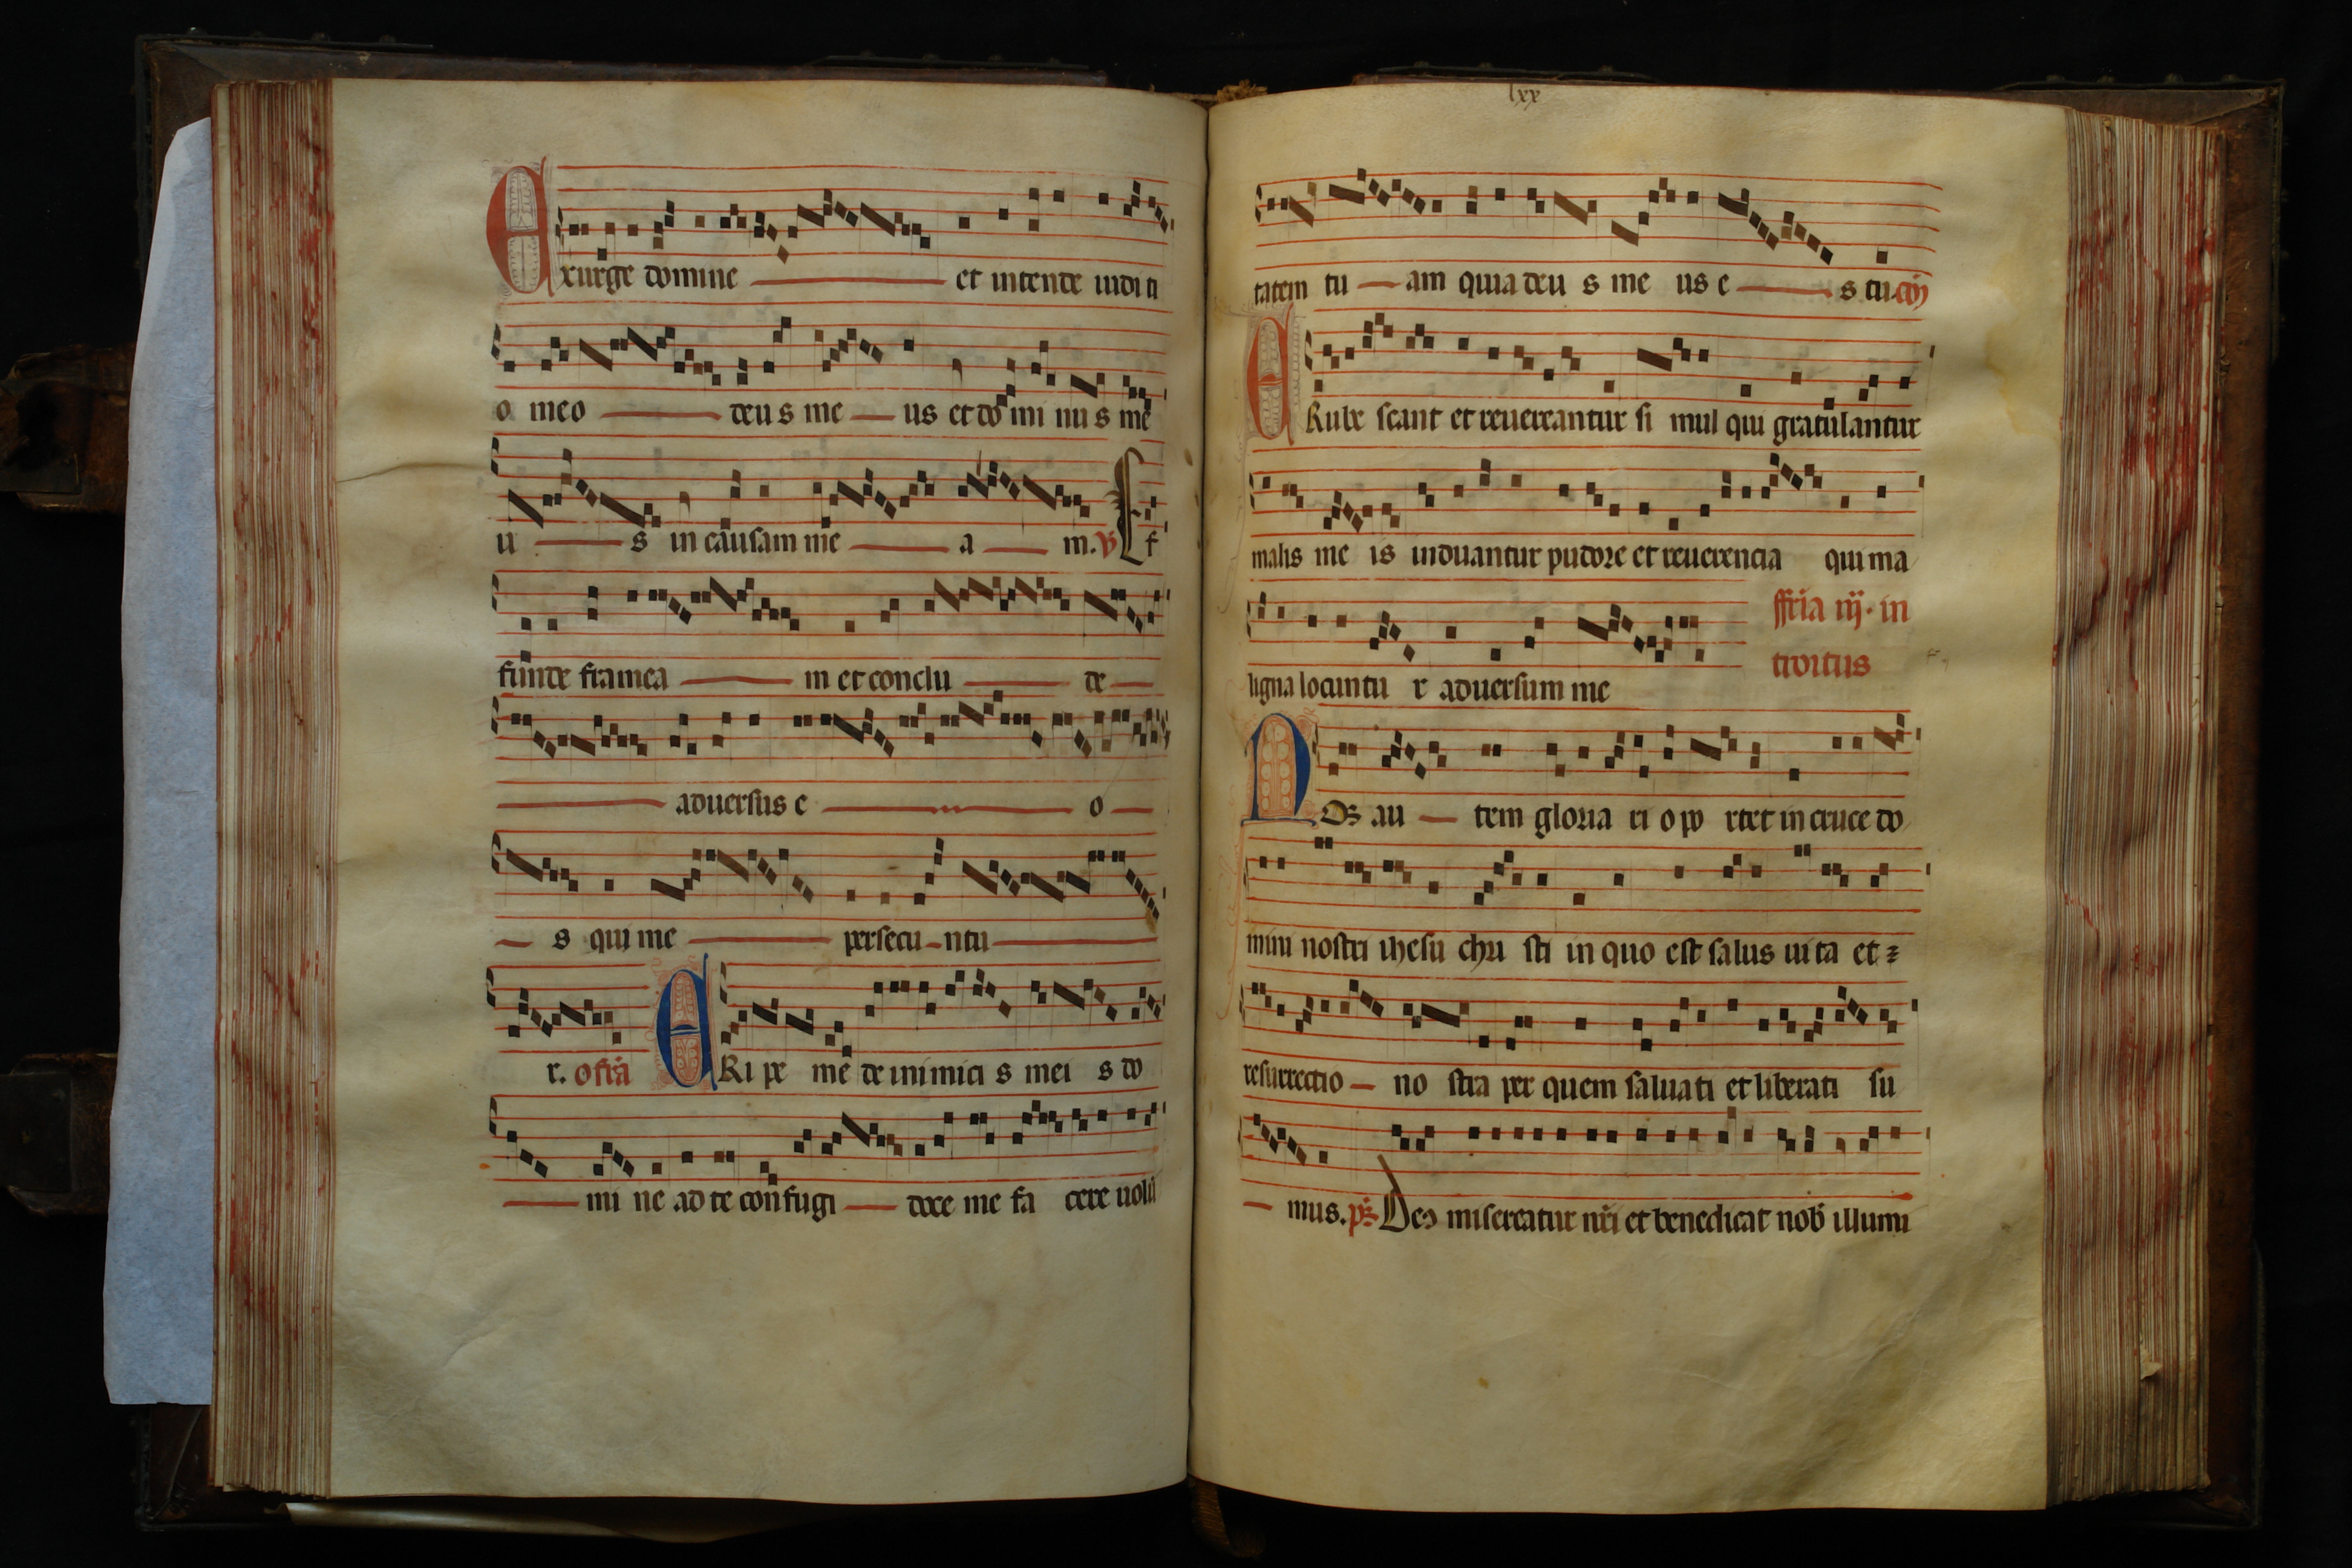 Exurge domine et intende iudici
o meo deus meus et dominus me
us in causam meam. V Ef
funde frameam et conclude
adversus eo
s qui me persecuntu
r. ofria ERipe me de inimicis meis do
mine ad te confugi doce me facere uolu
lxx
tatem tuam quia deus meus es tu. cō
ERubescant et reuereantur simul qui gratulantur
malis meis induantur pudore et reuerencia qui ma
ligna locuntur aduersum me
ffria iij. in
troitus
NOs autem gloriari oportet in cruce do
mini nostri ihesu christi in quo est salus uita et
resurrectio nostra per quem saluati et liberati su
mus. ps Deus misereatur nri et benedicat nob illumi